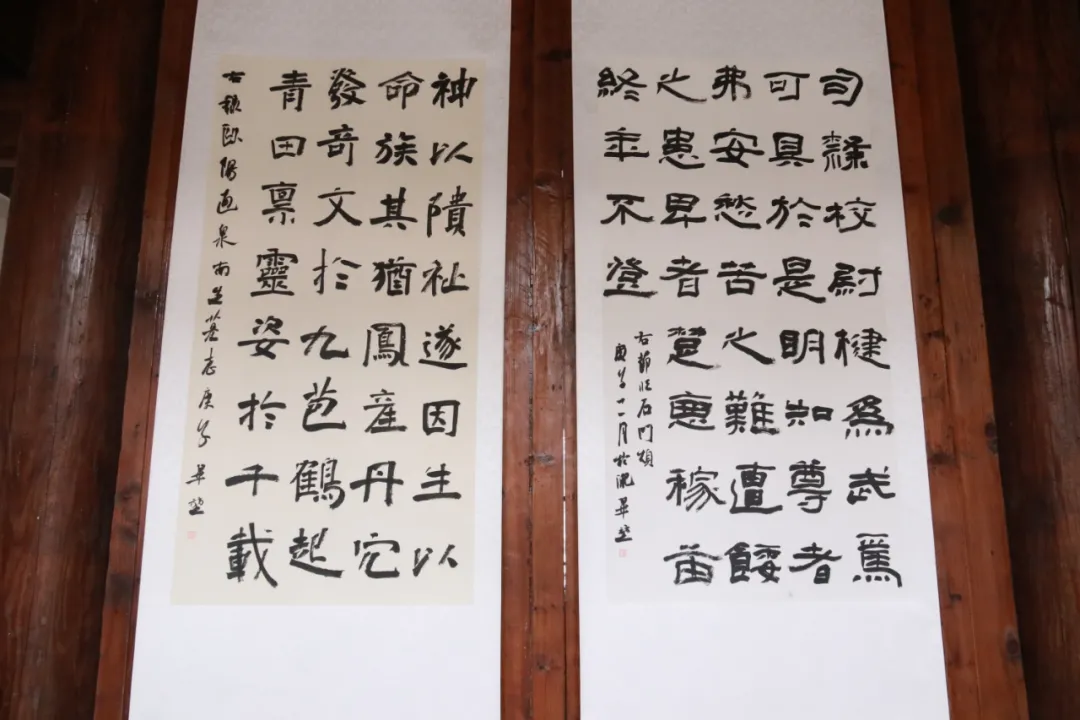 司隸校尉楗為武
可具於是明知尊者
弗安愁苦之難遭餧
之患卑者楚惡稼苗
終年不登
右節臨石門頌
庚子十一月於
神以隤祉遂因生以
命族其猶鳳產丹穴
發奇文於九苞鶴起
青田稟靈姿於千載
右錄歐陽通泉南生墓志庚子